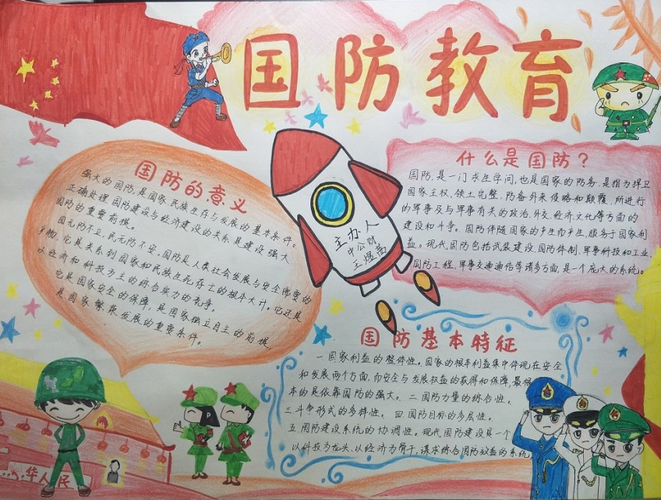 国防教育
国防的意义
强大的国防,是国家、民族生存与发展的基本条件。
正确处理国防建设与经济建设的关系是建设强大
国防的重要前提。
国无防不立,民无防不安,国防是人类社会发展与安全需要的
产物,它是关系到国家和民族生死存亡的根本大计,它还是
以经济和科技为主的综合实力的竞争。
它是国家安全的保障,是国家独立自主的前提
是国家繁荣发展的重要条件。
主办人
王煜菡
什么是国防?
国防,是一门求生学问,也是国家的防务,是指为捍卫
国家主权、领土完整,防备外来侵略和颠覆,所进行
的军事及与军事有关的政治、外交、经济文化等方面的
建设和斗争。国防伴随国家的产生而产生,服于国家利
益。现代国防包括武装建设国防体制,军事科技和工业,
国防工程,军事交通通信等诸多方面,是一个庞大的系统。
国防基本特征
一国家利益的整体性。国家的根本利益集中体现在安全
和发展两个方面,而安全与发展权益的获得和保障,最根
本的是依靠国防的强大。二国防力量的综合性。
三斗争形式的多样性。四国防目标的多层性。
五国防建设系统的协调性。现代国防建设是一个
以科技为龙头、以经济为骨干,谋求综合国防效益的系统
华人民